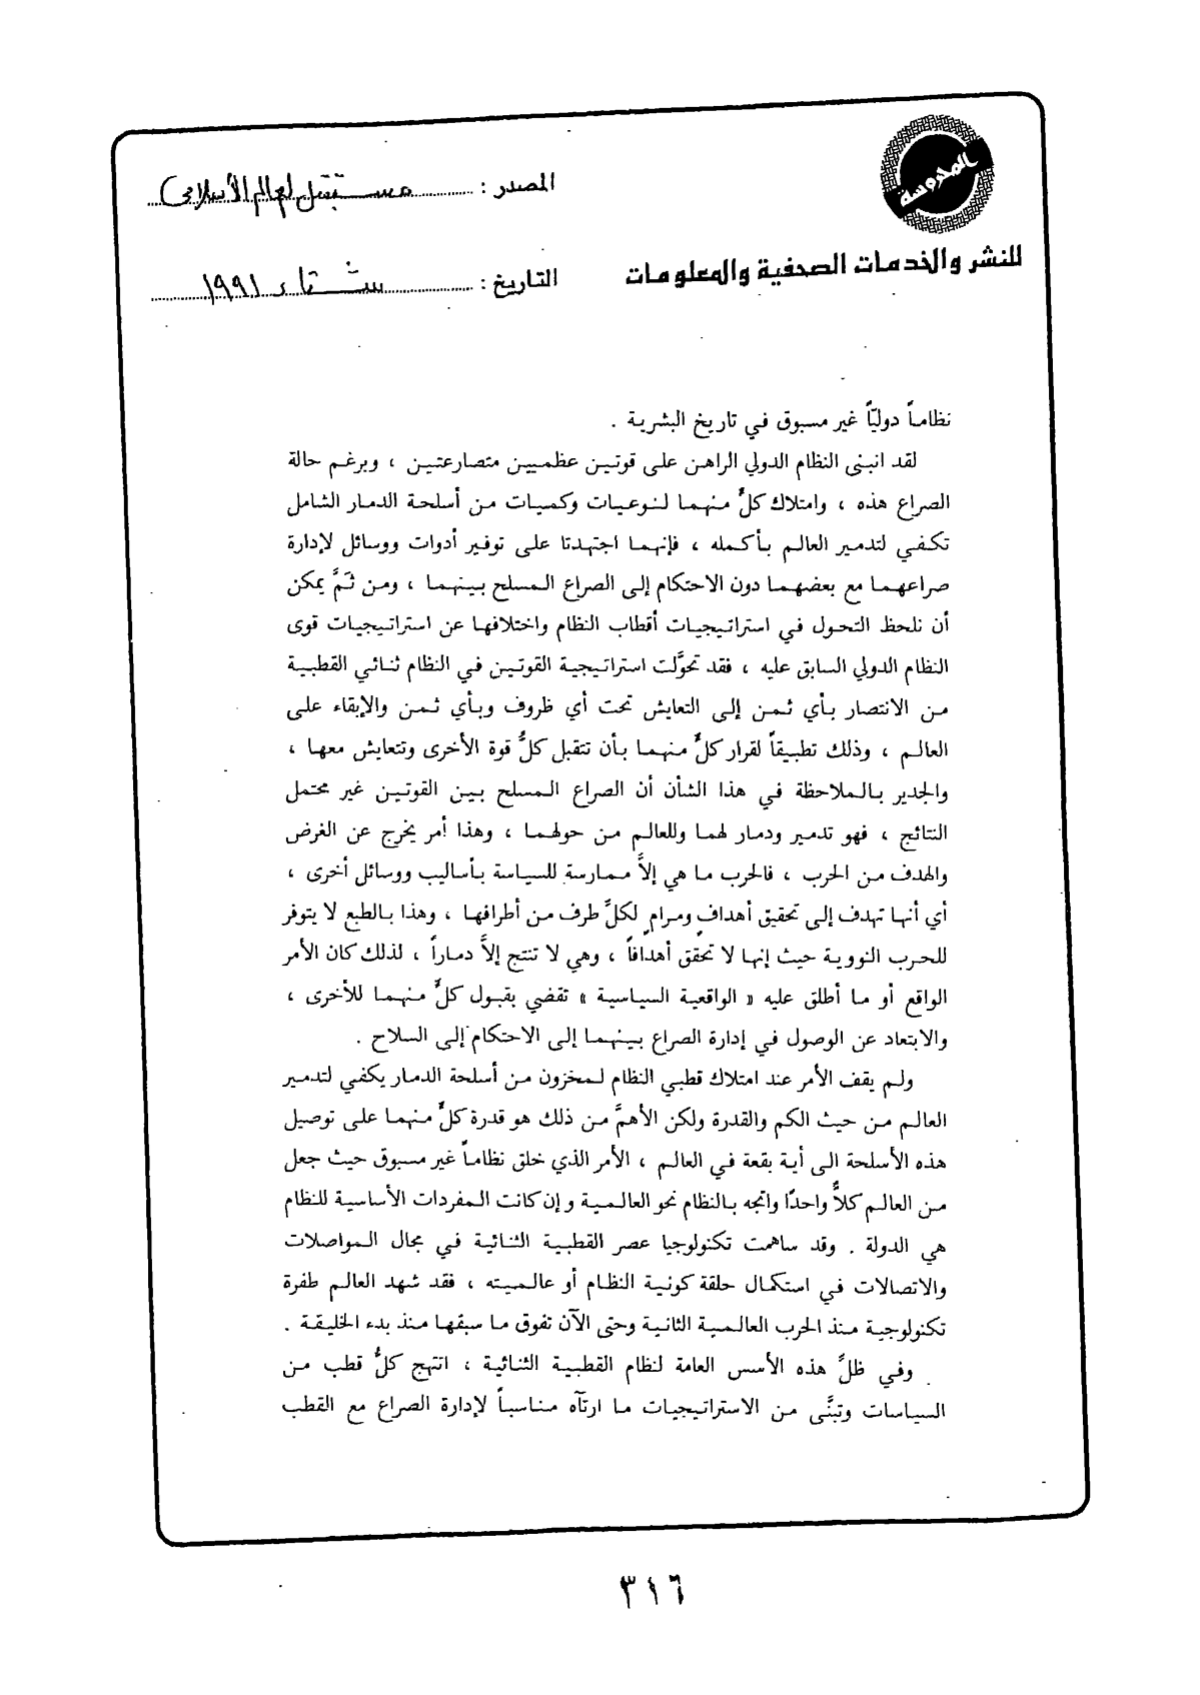 المحروسة
المصدر : مستقبل العالم الإسلامي
للنشر والخدمات الصحفية والمعلومات
التاريخ : شتاء ١٩٩١
نظاماً دوليّاً غير مسبوق في تاريخ البشرية .
لقد انبنى النظام الدولي الراهن على قوتين عظميين متصارعتين ، وبرغم حالة
الصراع هذه ، وامتلاك كلٍّ منهما لنوعيات وكميات من أسلحة الدمار الشامل
تكفي لتدمير العالم بأكمله ، فإنهما اجتهدتا على توفير أدوات ووسائل لإدارة
صراعهما مع بعضهما دون الاحتكام إلى الصراع المسلح بينهما ، ومن ثَمَّ يمكن
أن نلحظ التحول في استراتيجيات أقطاب النظام واختلافها عن استراتيجيات قوى
النظام الدولي السابق عليه ، فقد تحوَّلت استراتيجية القوتين في النظام ثنائي القطبية
من الانتصار بأي ثمن إلى التعايش تحت أي ظروف وبأي ثمن والإبقاء على
العالم ، وذلك تطبيقاً لقرار كلٍّ منهما بأن تتقبل كلُّ قوة الأخرى وتتعايش معها ،
والجدير بالملاحظة في هذا الشأن أن الصراع المسلح بين القوتين غير محتمل
النتائج ، فهو تدمير ودمار لهما وللعالم من حولهما ، وهذا أمر يخرج عن الغرض
والهدف من الحرب ، فالحرب ما هي إلاَّ ممارسة للسياسة بأساليب ووسائل أخرى ،
أي أنها تهدف إلى تحقيق أهدافٍ ومرامٍ لكلِّ طرف من أطرافها ، وهذا بالطبع لا يتوفر
للحرب النووية حيث إنها لا تحقق أهدافاً ، وهي لا تنتج إلاَّ دماراً ، لذلك كان الأمر
الواقع أو ما أطلق عليه « الواقعية السياسية » تقضي بقبول كلٍّ منهما للأخرى ،
والابتعاد عن الوصول في إدارة الصراع بينهما إلى الاحتكام إلى السلاح .
ولم يقف الأمر عند امتلاك قطبي النظام لمخزون من أسلحة الدمار يكفي لتدمير
العالم من حيث الكم والقدرة ولكن الأهمَّ من ذلك هو قدرة كلٍّ منهما على توصيل
هذه الأسلحة الى أية بقعة في العالم ، الأمر الذي خلق نظاماً غير مسبوق حيث جعل
من العالم كلاًّ واحدًا واتجه بالنظام نحو العالمية وإن كانت المفردات الأساسية للنظام
هي الدولة . وقد ساهمت تكنولوجيا عصر القطبية الثنائية في مجال المواصلات
والاتصالات في استكمال حلقة كونية النظام أو عالميته ، فقد شهد العالم طفرة
تكنولوجية منذ الحرب العالمية الثانية وحتى الآن تفوق ما سبقها منذ بدء الخليقة .
وفي ظلِّ هذه الأسس العامة لنظام القطبية الثنائية ، انتهج كلُّ قطب من
السياسات وتبنَّى من الاستراتيجيات ما ارتآه مناسباً لإدارة الصراع مع القطب
٣١٦